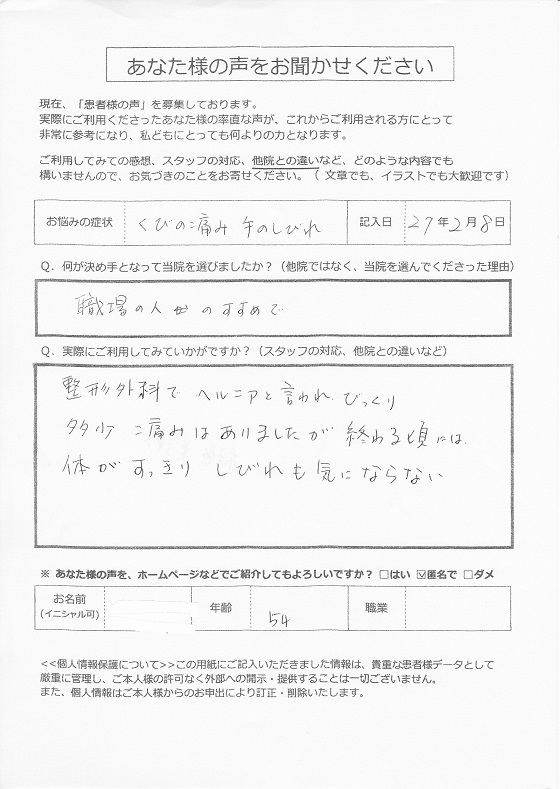 あなた様の声をお聞かせください
現在、「患者様の声」を募集しております。
実際にご利用くださったあなた様の率直な声が、これからご利用される方にとって
非常に参考になり、私どもにとっても何よりの力となります。
ご利用してみての感想、スタッフの対応、他院との違いなど、どのような内容でも
構いませんので、お気づきのことをお寄せください。（ 文章でも、イラストでも大歓迎です）
お悩みの症状 くびの痛み 手のしびれ 記入日 27年2月8日
Q．何が決め手となって当院を選びましたか？（他院ではなく、当院を選んでくださった理由）
職場の人のすすめで
Q．実際にご利用してみていかがですか？（スタッフの対応、他院との違いなど）
整形外科で ヘルニアと言われ びっくり
多少 痛みはありましたが 終わる頃には
体がすっきり しびれも気にならない
※ あなた様の声を、ホームページなどでご紹介してもよろしいですか？ □はい ☑匿名で □ダメ
お名前 年齢 54 職業
(イニシャル可)
<<個人情報保護について>>この用紙にご記入いただきました情報は、貴重な患者様データとして
厳重に管理し、ご本人様の許可なく外部への開示・提供することは一切ございません。
また、個人情報はご本人様からのお申出により訂正・削除いたします。